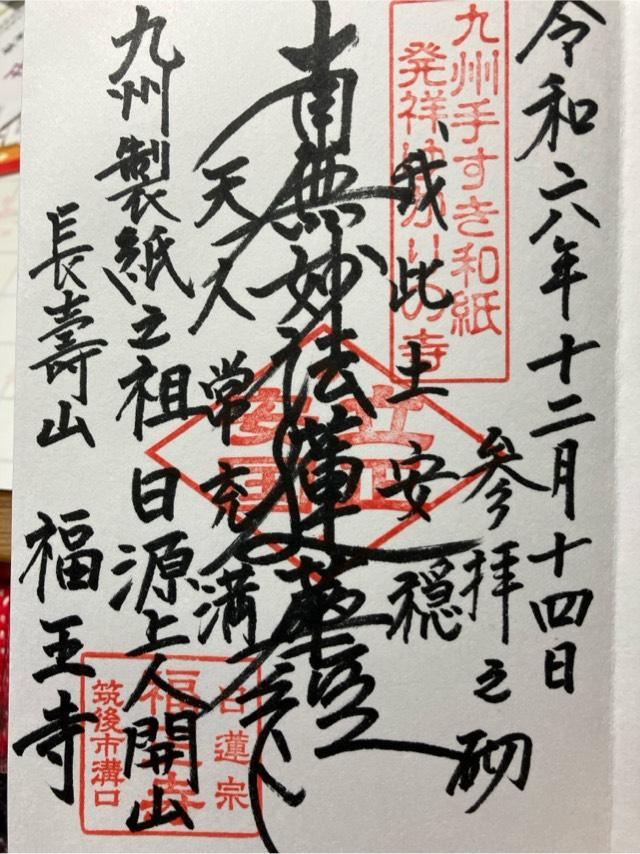 令和六年十二月十四日
参拝之砌
九州手すき和紙
発祥ゆかりの寺
我此土安穏
南無妙法蓮華経
天人常充満
立正
安国
九州製紙之祖日源上人開山
長壽山 福王寺
日蓮宗
福王寺
筑後市溝口